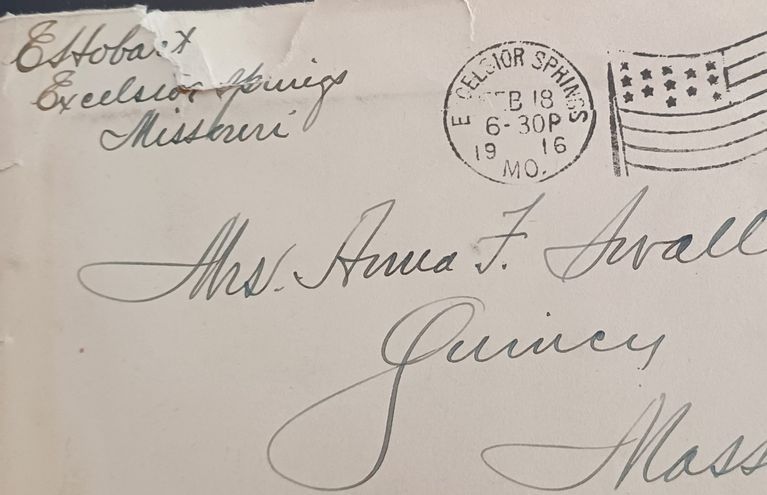 E S Hobart
Excelsior Springs
Missouri
EXCELSIOR SPRINGS
FEB 18
6-30P
19 16
MO.
Mrs. Anna F. Swall
Quincy
Mass